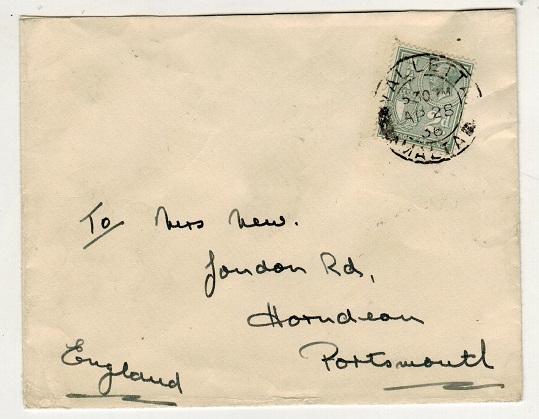 VALLETTA
5 30 PM
AP 28
36
MALTA
To Mrs New.
London Rd,
Horndean
Portsmouth
England